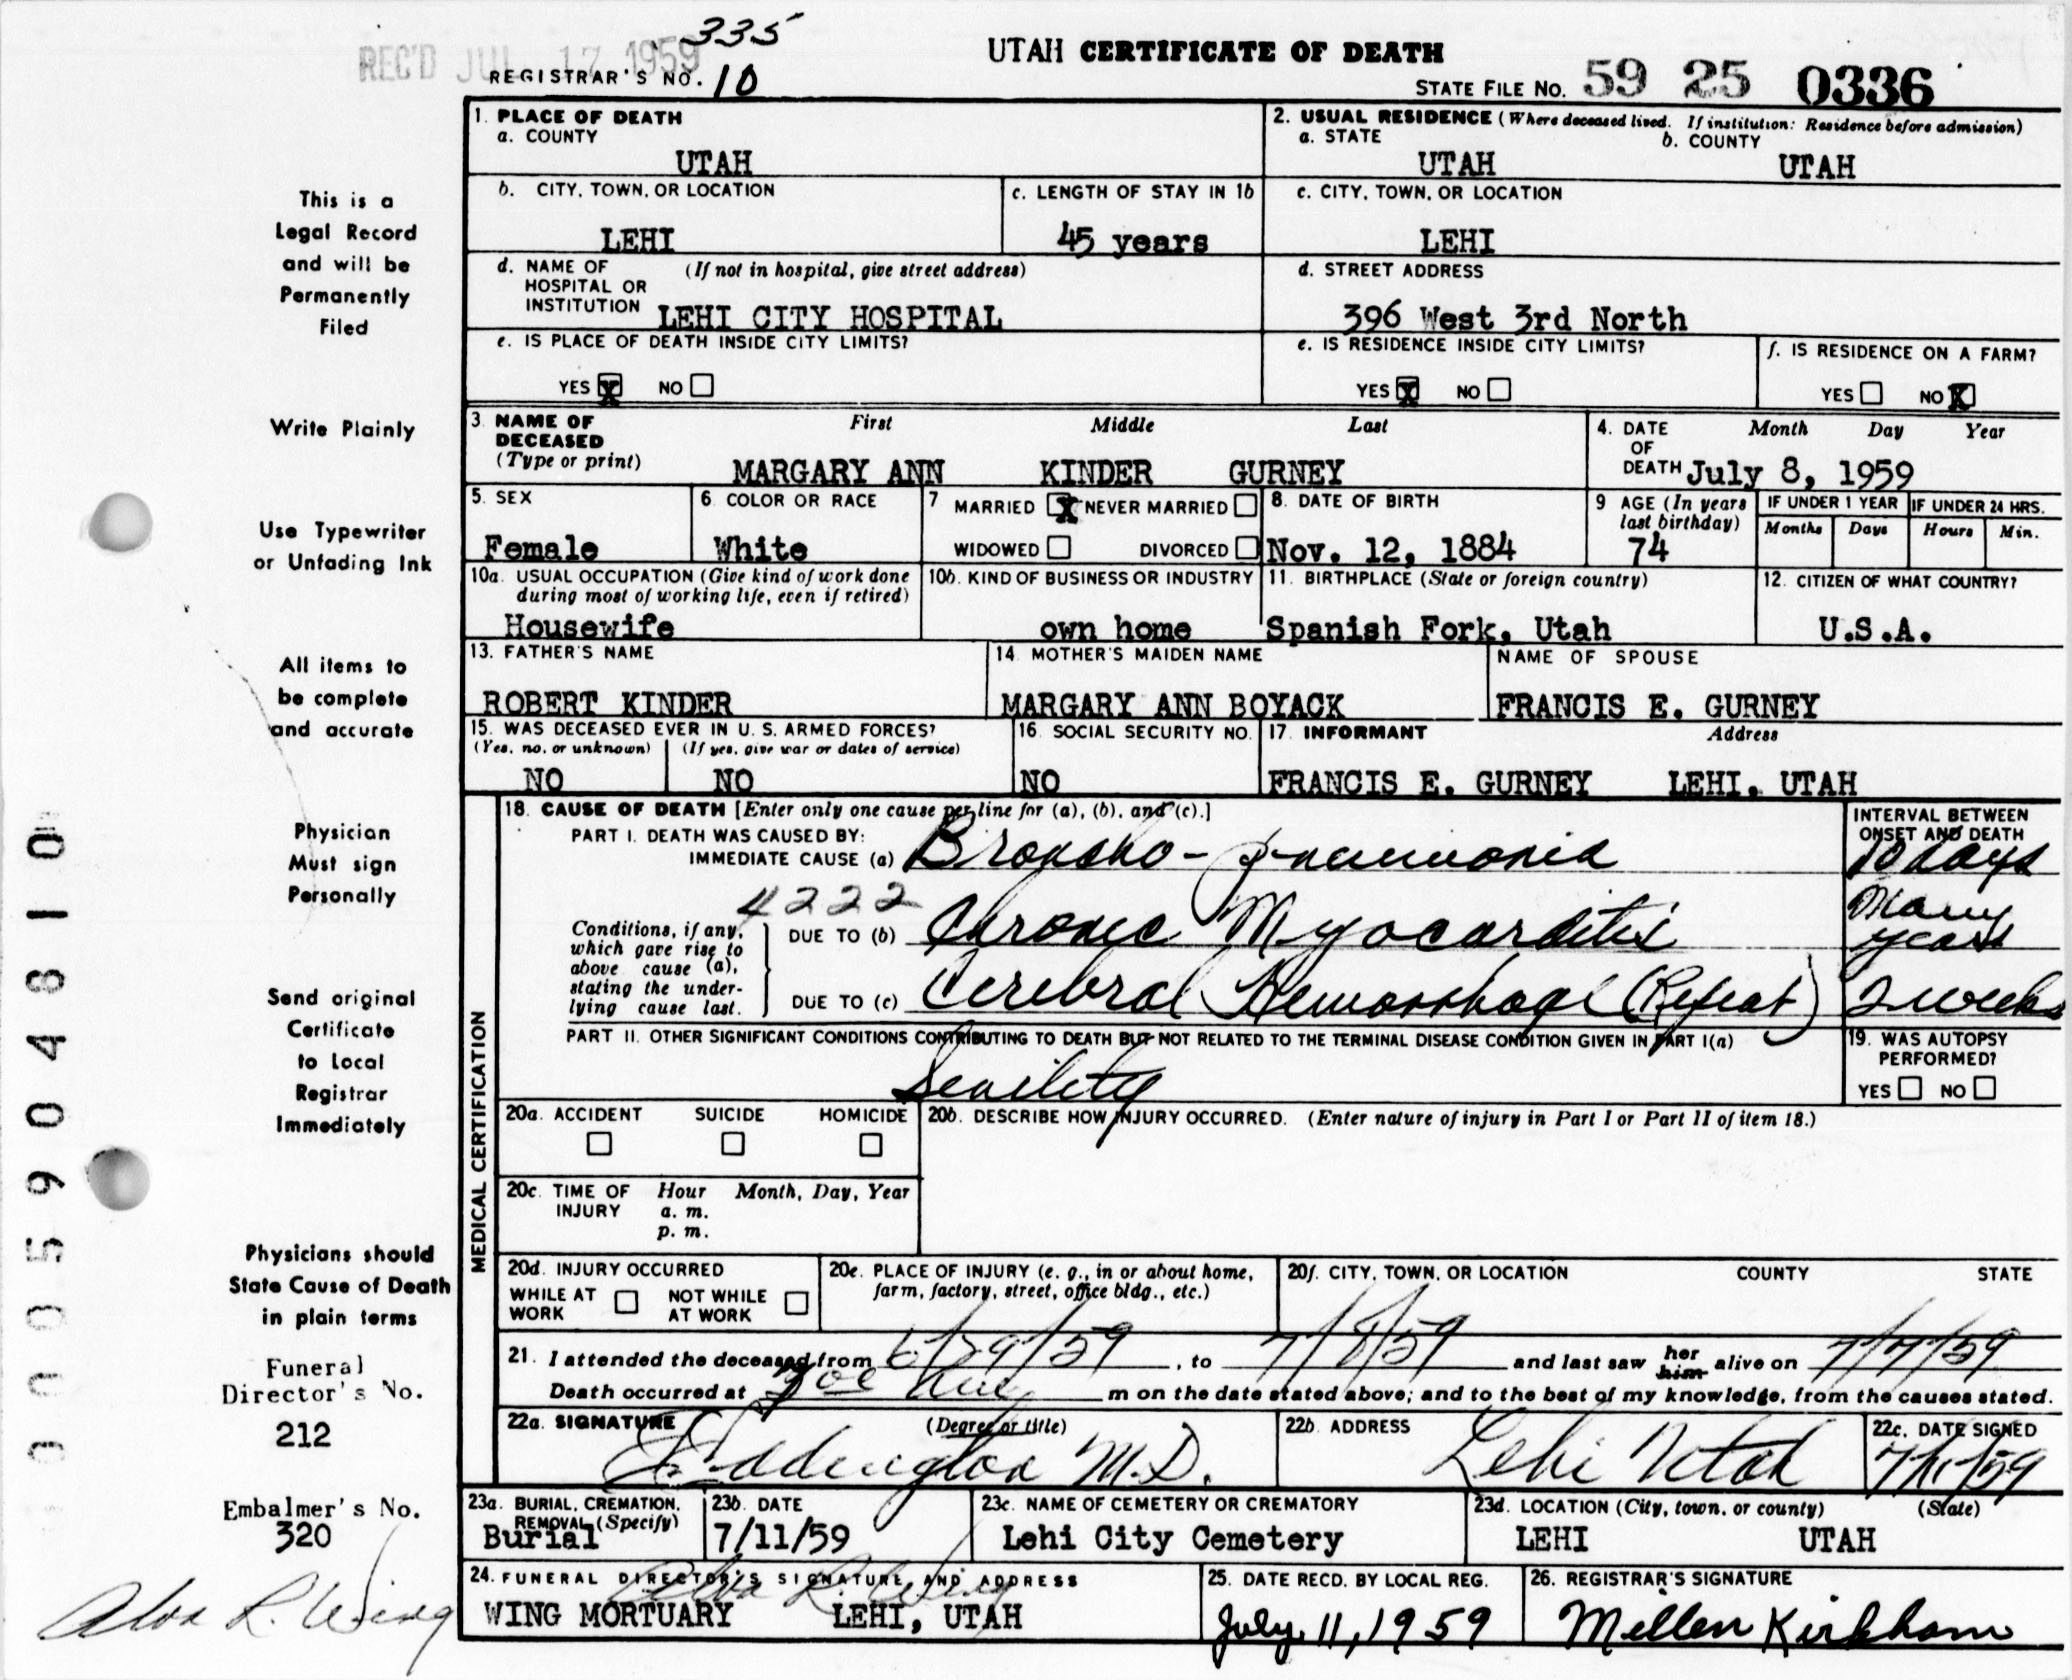 335
REC'D JUL 17 1959
UTAH CERTIFICATE OF DEATH
REGISTRAR'S NO. 10
STATE FILE NO. 59 25 0336
This is a
Legal Record
and will be
Permanently
Filed
Write Plainly
Use Typewriter
or Unfading Ink
All items to
be complete
and accurate
Physician
Must sign
Personally
Send original
Certificate
to Local
Registrar
Immediately
Physicians should
State Cause of Death
in plain terms
Funeral
Director's No.
212
Embalmer's No.
320
Alva R. Wing
1. PLACE OF DEATH
a. COUNTY
UTAH
2. USUAL RESIDENCE (Where deceased lived. If institution: Residence before admission)
a. STATE b. COUNTY
UTAH UTAH
b. CITY, TOWN, OR LOCATION
LEHI
c. LENGTH OF STAY IN 1b
45 years
c. CITY, TOWN, OR LOCATION
LEHI
d. NAME OF (If not in hospital, give street address)
HOSPITAL OR
INSTITUTION LEHI CITY HOSPITAL
d. STREET ADDRESS
396 West 3rd North
e. IS PLACE OF DEATH INSIDE CITY LIMITS?
YES X NO
e. IS RESIDENCE INSIDE CITY LIMITS?
YES X NO
f. IS RESIDENCE ON A FARM?
YES NO X
3. NAME OF First Middle Last
DECEASED
(Type or print)
MARGARY ANN KINDER GURNEY
4. DATE Month Day Year
OF
DEATH July 8, 1959
5. SEX
Female
6. COLOR OR RACE
White
7 MARRIED X NEVER MARRIED
WIDOWED DIVORCED
8. DATE OF BIRTH
Nov. 12, 1884
9 AGE (In years
last birthday)
74
IF UNDER 1 YEAR
Months Days
IF UNDER 24 HRS.
Hours Min.
10a. USUAL OCCUPATION (Give kind of work done
during most of working life, even if retired)
Housewife
10b. KIND OF BUSINESS OR INDUSTRY
own home
11. BIRTHPLACE (State or foreign country)
Spanish Fork, Utah
12. CITIZEN OF WHAT COUNTRY?
U.S.A.
13. FATHER'S NAME
ROBERT KINDER
14. MOTHER'S MAIDEN NAME
MARGARY ANN BOYACK
NAME OF SPOUSE
FRANCIS E. GURNEY
15. WAS DECEASED EVER IN U. S. ARMED FORCES?
(Yes, no, or unknown) (If yes, give war or dates of service)
NO NO
16. SOCIAL SECURITY NO.
NO
17. INFORMANT Address
FRANCIS E. GURNEY LEHI, UTAH
MEDICAL CERTIFICATION
18. CAUSE OF DEATH [Enter only one cause per line for (a), (b), and (c).]
PART I. DEATH WAS CAUSED BY:
IMMEDIATE CAUSE (a) Broncho-pneumonia
INTERVAL BETWEEN
ONSET AND DEATH
10 days
4222
Conditions, if any,
which gave rise to
above cause (a),
stating the under-
lying cause last.
DUE TO (b) Chronic Myocarditis
Many
years
DUE TO (c) Cerebral Hemorrhage (Repeat)
2 weeks
PART II. OTHER SIGNIFICANT CONDITIONS CONTRIBUTING TO DEATH BUT NOT RELATED TO THE TERMINAL DISEASE CONDITION GIVEN IN PART I(a)
Senility
19. WAS AUTOPSY
PERFORMED?
YES NO
20a. ACCIDENT SUICIDE HOMICIDE
20b. DESCRIBE HOW INJURY OCCURRED. (Enter nature of injury in Part I or Part II of item 18.)
20c. TIME OF Hour Month, Day, Year
INJURY a. m.
p. m.
20d. INJURY OCCURRED
WHILE AT NOT WHILE
WORK AT WORK
20e. PLACE OF INJURY (e. g., in or about home,
farm, factory, street, office bldg., etc.)
20f. CITY, TOWN, OR LOCATION COUNTY STATE
21. I attended the deceased from 6/29/59, to 7/8/59 and last saw her him alive on 7/7/59
Death occurred at m on the date stated above; and to the best of my knowledge, from the causes stated.
22a. SIGNATURE (Degree or title)
Eddington M.D.
22b. ADDRESS
Lehi Utah
22c. DATE SIGNED
23a. BURIAL, CREMATION,
REMOVAL (Specify)
Burial
23b. DATE
7/11/59
23c. NAME OF CEMETERY OR CREMATORY
Lehi City Cemetery
23d. LOCATION (City, town, or county) (State)
LEHI UTAH
24. FUNERAL DIRECTOR'S SIGNATURE AND ADDRESS
Alva R. Wing
WING MORTUARY LEHI, UTAH
25. DATE RECD. BY LOCAL REG.
July 11, 1959
26. REGISTRAR'S SIGNATURE
Millen Kirkham
0005904810